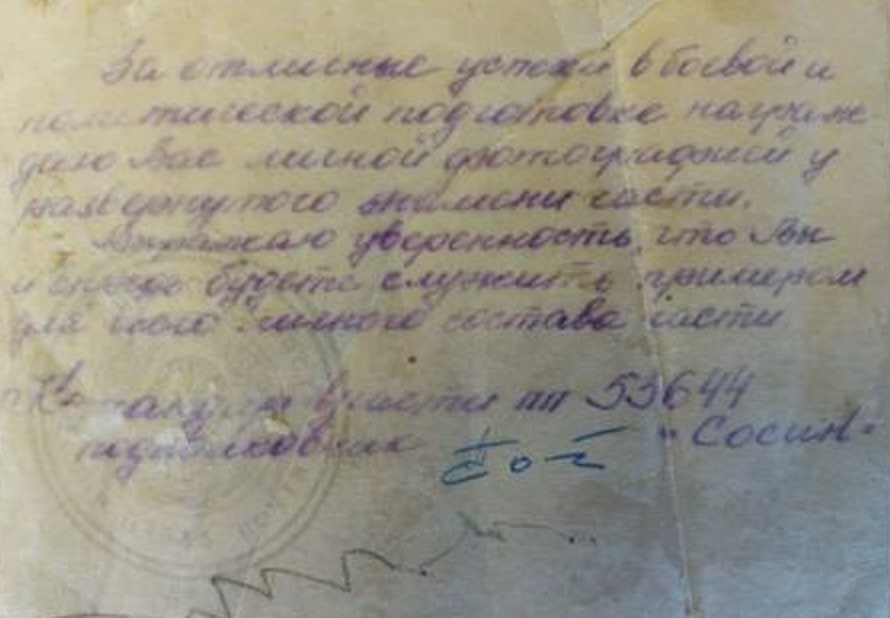 За отличные успехи в боевой и
политической подготовке награж
даю Вас личной фотографией у
развернутого знамени части.
Выражаю уверенность, что Вы
и впредь будете служить примером
для всего личного состава части.
Командир в/части пп 53644
подполковник "Сосин"